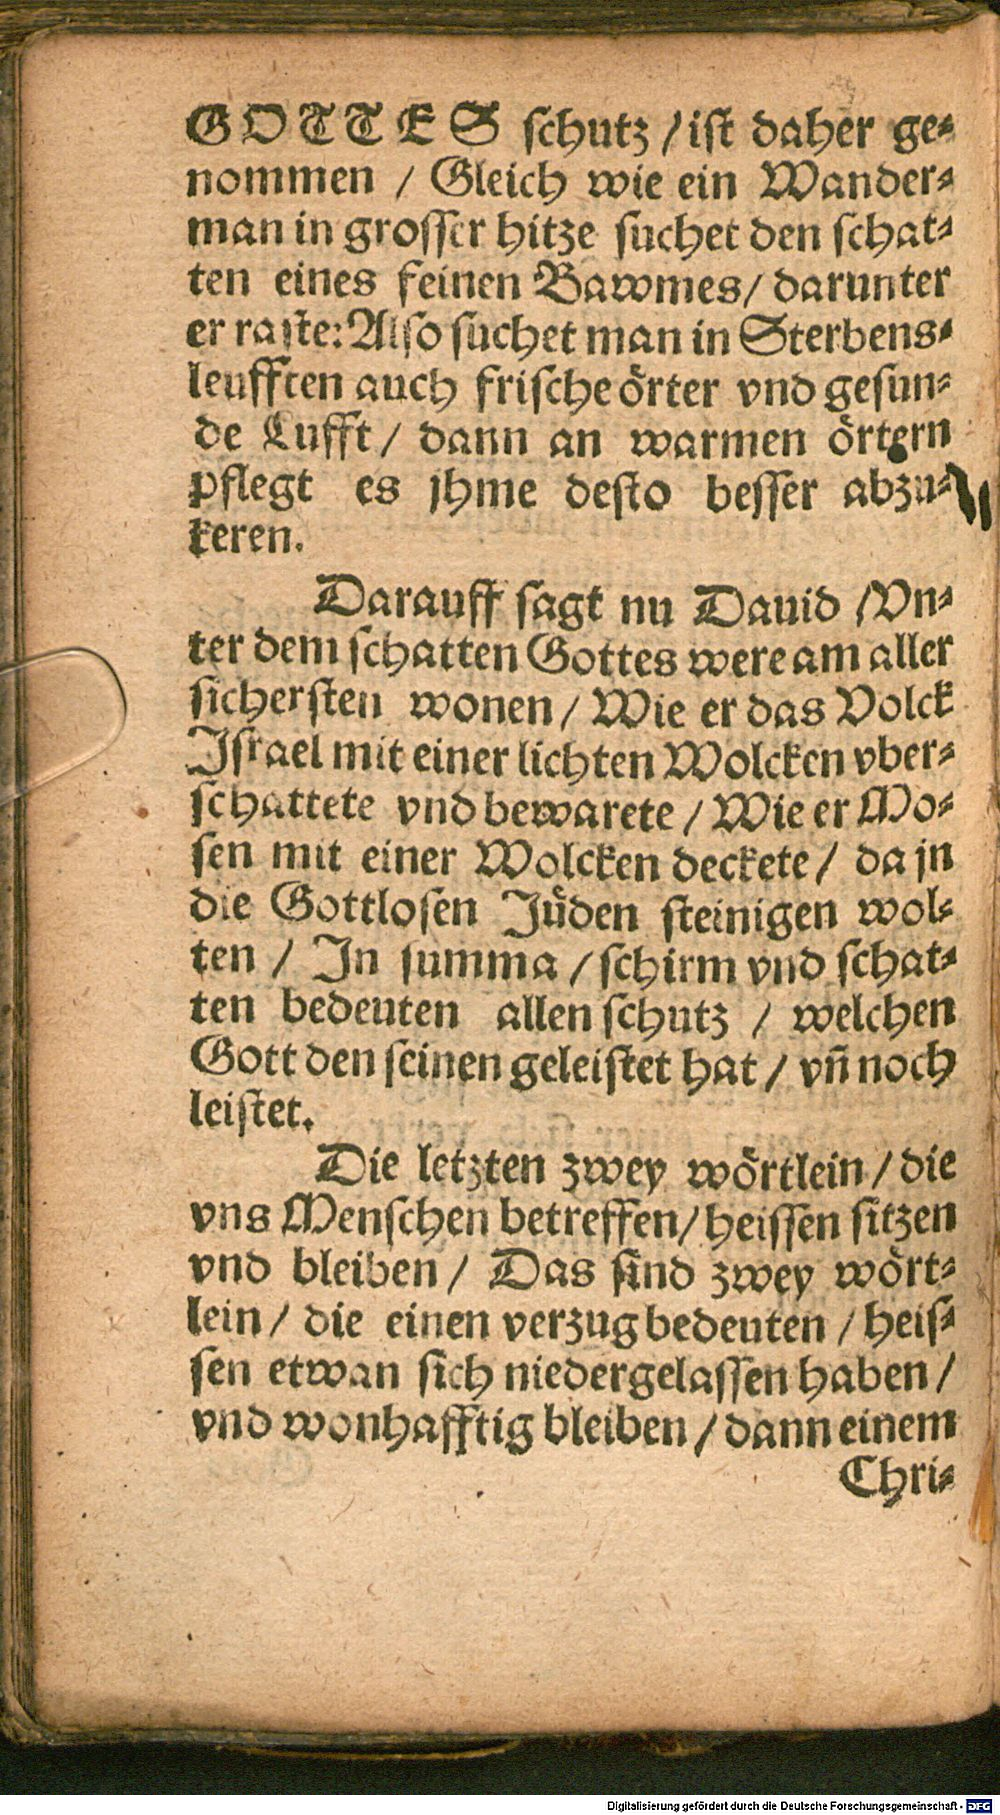 GOTTES schutz / ist daher ge⸗
nommen / Gleich wie ein Wander⸗
man in grosser hitze suchet den schat⸗
ten eines feinen Bawmes / darunter
er raste: Also suchet man in Sterbens⸗
leufften auch frische örter vnd gesun⸗
de Lufft / dann an warmen örtern
pflegt es jhme desto besser abzu⸗
keren.
Darauff sagt nu Dauid / Vn⸗
ter dem schatten Gottes were am aller
sichersten wonen / Wie er das Volck
Israel mit einer lichten Wolcken vber⸗
schattete vnd bewarete / Wie er Mo⸗
sen mit einer Wolcken deckete / da jn
die Gottlosen Jüden steinigen wol⸗
ten / In summa / schirm vnd schat⸗
ten bedeuten allen schutz / welchen
Gott den seinen geleistet hat / vn̄ noch
leistet.
Die letzten zwey wörtlein / die
vns Menschen betreffen / heissen sitzen
vnd bleiben / Das sind zwey wört⸗
lein / die einen verzug bedeuten / heis⸗
sen etwan sich niedergelassen haben /
vnd wonhafftig bleiben / dann einem
Chri⸗
Digitalisierung gefördert durch die Deutsche Forschungsgemeinschaft - DFG